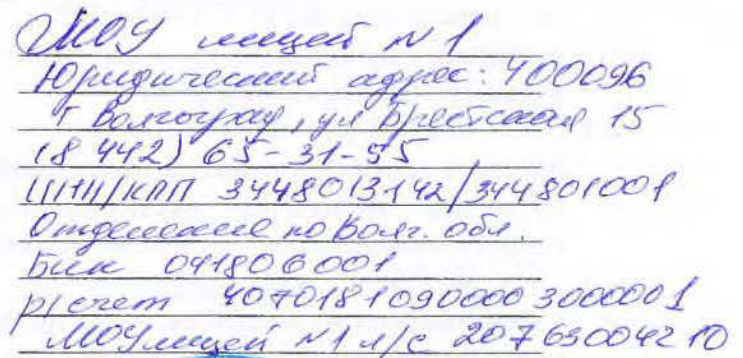 МОУ лицей N 1
Юридический адрес: 400096
г Волгоград, ул Брестская 15
(8 442) 65-31-55
ИНН/КПП 3448013142/344801001
Отделение по Волг. обл.
Бик 041806001
р/счет 40701810900003000001
МОУ лицей N1 л/с 20763004210